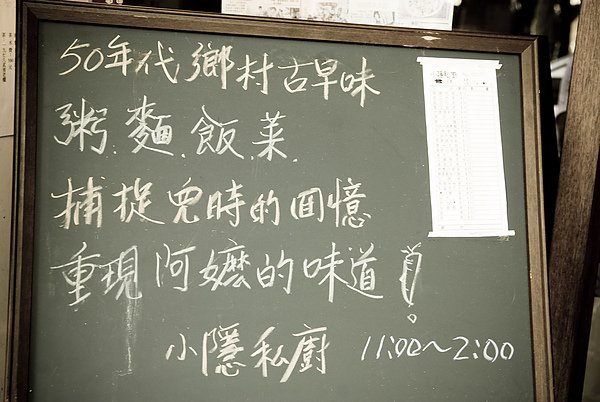 50年代鄉村古早味
粥.麵.飯.菜.
捕捉兒時的回憶
重現阿嬤的味道!
小隱私廚 11:00~2:00